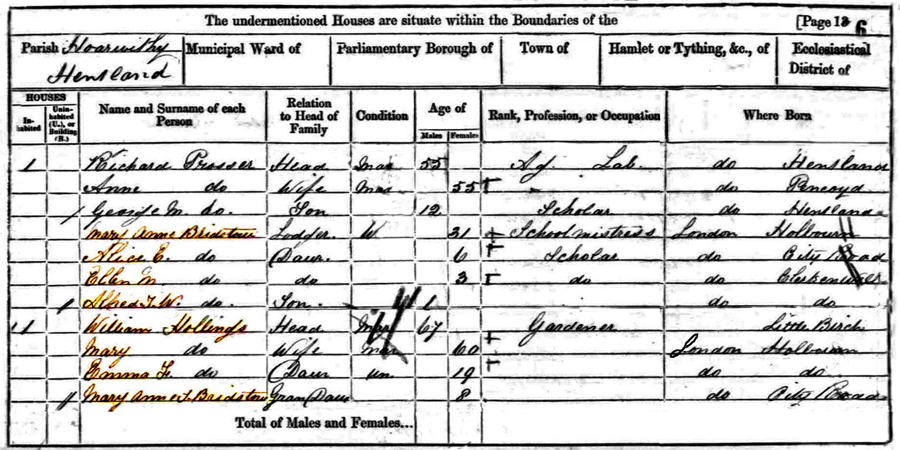 The undermentioned Houses are situate within the Boundaries of the [Page 6
Parish Hoarwithy Hentland Municipal Ward of Parliamentary Borough of Town of Hamlet or Tything, &c., of Ecclesiastical District of
HOUSES In-habited Unin-habited (U.), or Building (B.) Name and Surname of each Person Relation to Head of Family Condition Age of Males Females Rank, Profession, or Occupation Where Born
1 Richard Prosser Head Mar 55 Ag Lab. do Hentland
Anne do Wife Mar 55 " do Pencoyd
George M. do. Son 12 Scholar do Hentland
Mary Anne Bridstow Lodger W 31 Schoolmistress London Holbourn
Alice E. do Daur. 6 Scholar do City Road
Ellen M. do do 3 do do Clerkenwell
Alfred J. W. do. Son. 1 do do
1 William Hollings Head Mar 67 Gardener Little Birch
Mary do Wife Mar 60 London Holbourn
Emma F. do Daur un 19 do do.
Mary Anne F. Bridstow Gran Daur 8 do City Road
Total of Males and Females...